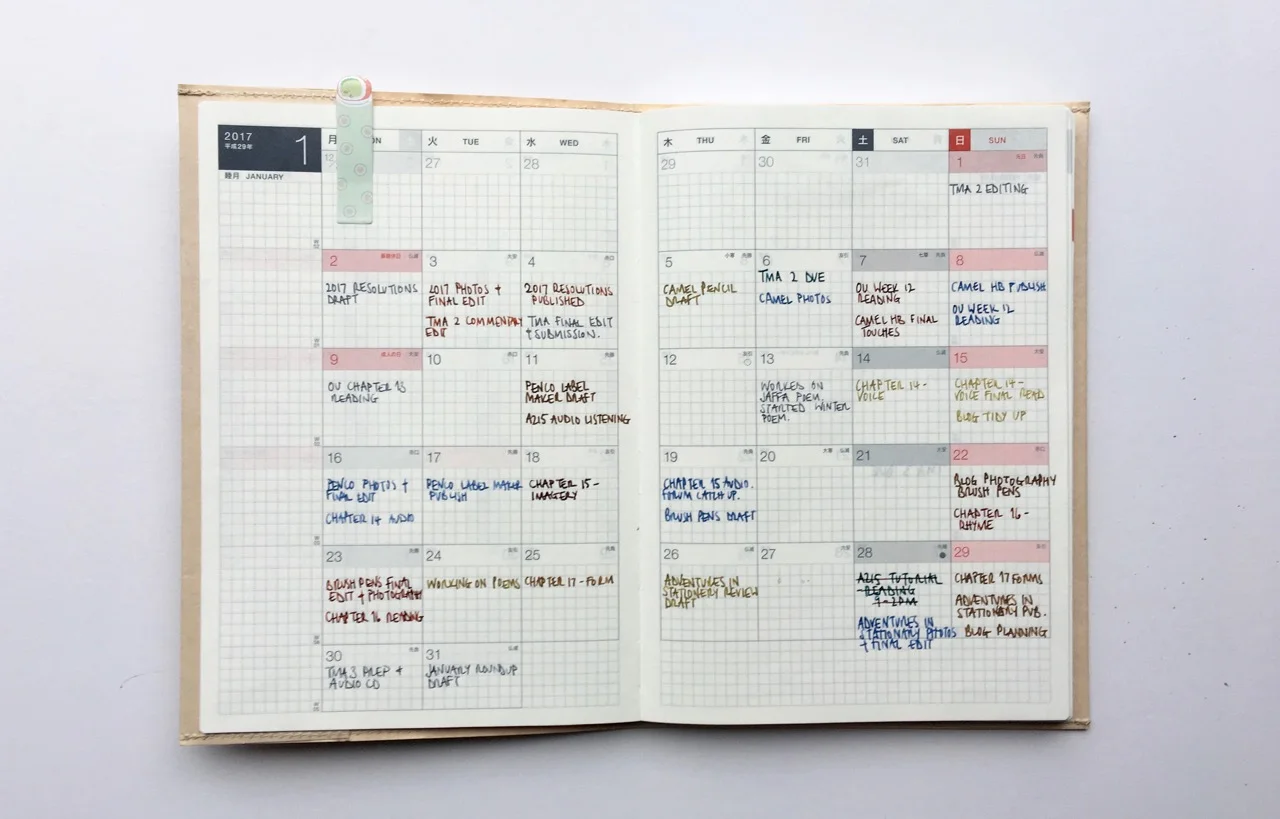 2017
平成29年
1
睦月 JANUARY
月
火 TUE
水 WED
木 THU
金 FRI
土 SAT
日 SUN
27
28
29
30
31
1
元日
TMA 2 EDITING
2
振替休日
2017 RESOLUTIONS
DRAFT
3
2017 PHOTOS +
FINAL EDIT
TMA 2 COMMENTARY
EDIT
4
2017 RESOLUTIONS
PUBLISHED
TMA FINAL EDIT
+ SUBMISSION.
5
小寒
CAMEL PENCIL
DRAFT
6
TMA 2 DUE
CAMEL PHOTOS
7
OU WEEK 12
READING
CAMEL HB FINAL
TOUCHES
8
CAMEL HB PUBLISH
OU WEEK 12
READING
9
成人の日
OU CHAPTER 13
READING
10
11
PENCO LABEL
MAKER DRAFT
A215 AUDIO LISTENING
12
13
WORKED ON
JAFFA POEM.
STARTED WINTER
POEM.
14
CHAPTER 14 -
VOICE
15
CHAPTER 14 -
VOICE FINAL READ
BLOG TIDY UP
16
PENCO PHOTOS +
FINAL EDIT
CHAPTER 14 AUDIO
17
PENCO LABEL MAKER
PUBLISH
18
CHAPTER 15 -
IMAGERY
19
CHAPTER 15 AUDIO.
FORUM CATCH UP.
BRUSH PENS DRAFT
20
21
22
BLOG PHOTOGRAPHY
BRUSH PENS
CHAPTER 16 -
RHYME
23
BRUSH PENS FINAL
EDIT + PHOTOGRAPHY
CHAPTER 16 READING
24
WORKING ON POEMS
25
CHAPTER 17 - FORM
26
ADVENTURES IN
STATIONERY REVIEW
DRAFT
27
28
A215 TUTORIAL
- READING
ADVENTURES IN
STATIONARY PHOTOS
+ FINAL EDIT
29
CHAPTER 17 FORMS
ADVENTURES IN
STATIONARY PUB.
BLOG PLANNING
30
TMA 3 PREP +
AUDIO CD
31
JANUARY ROUNDUP
DRAFT